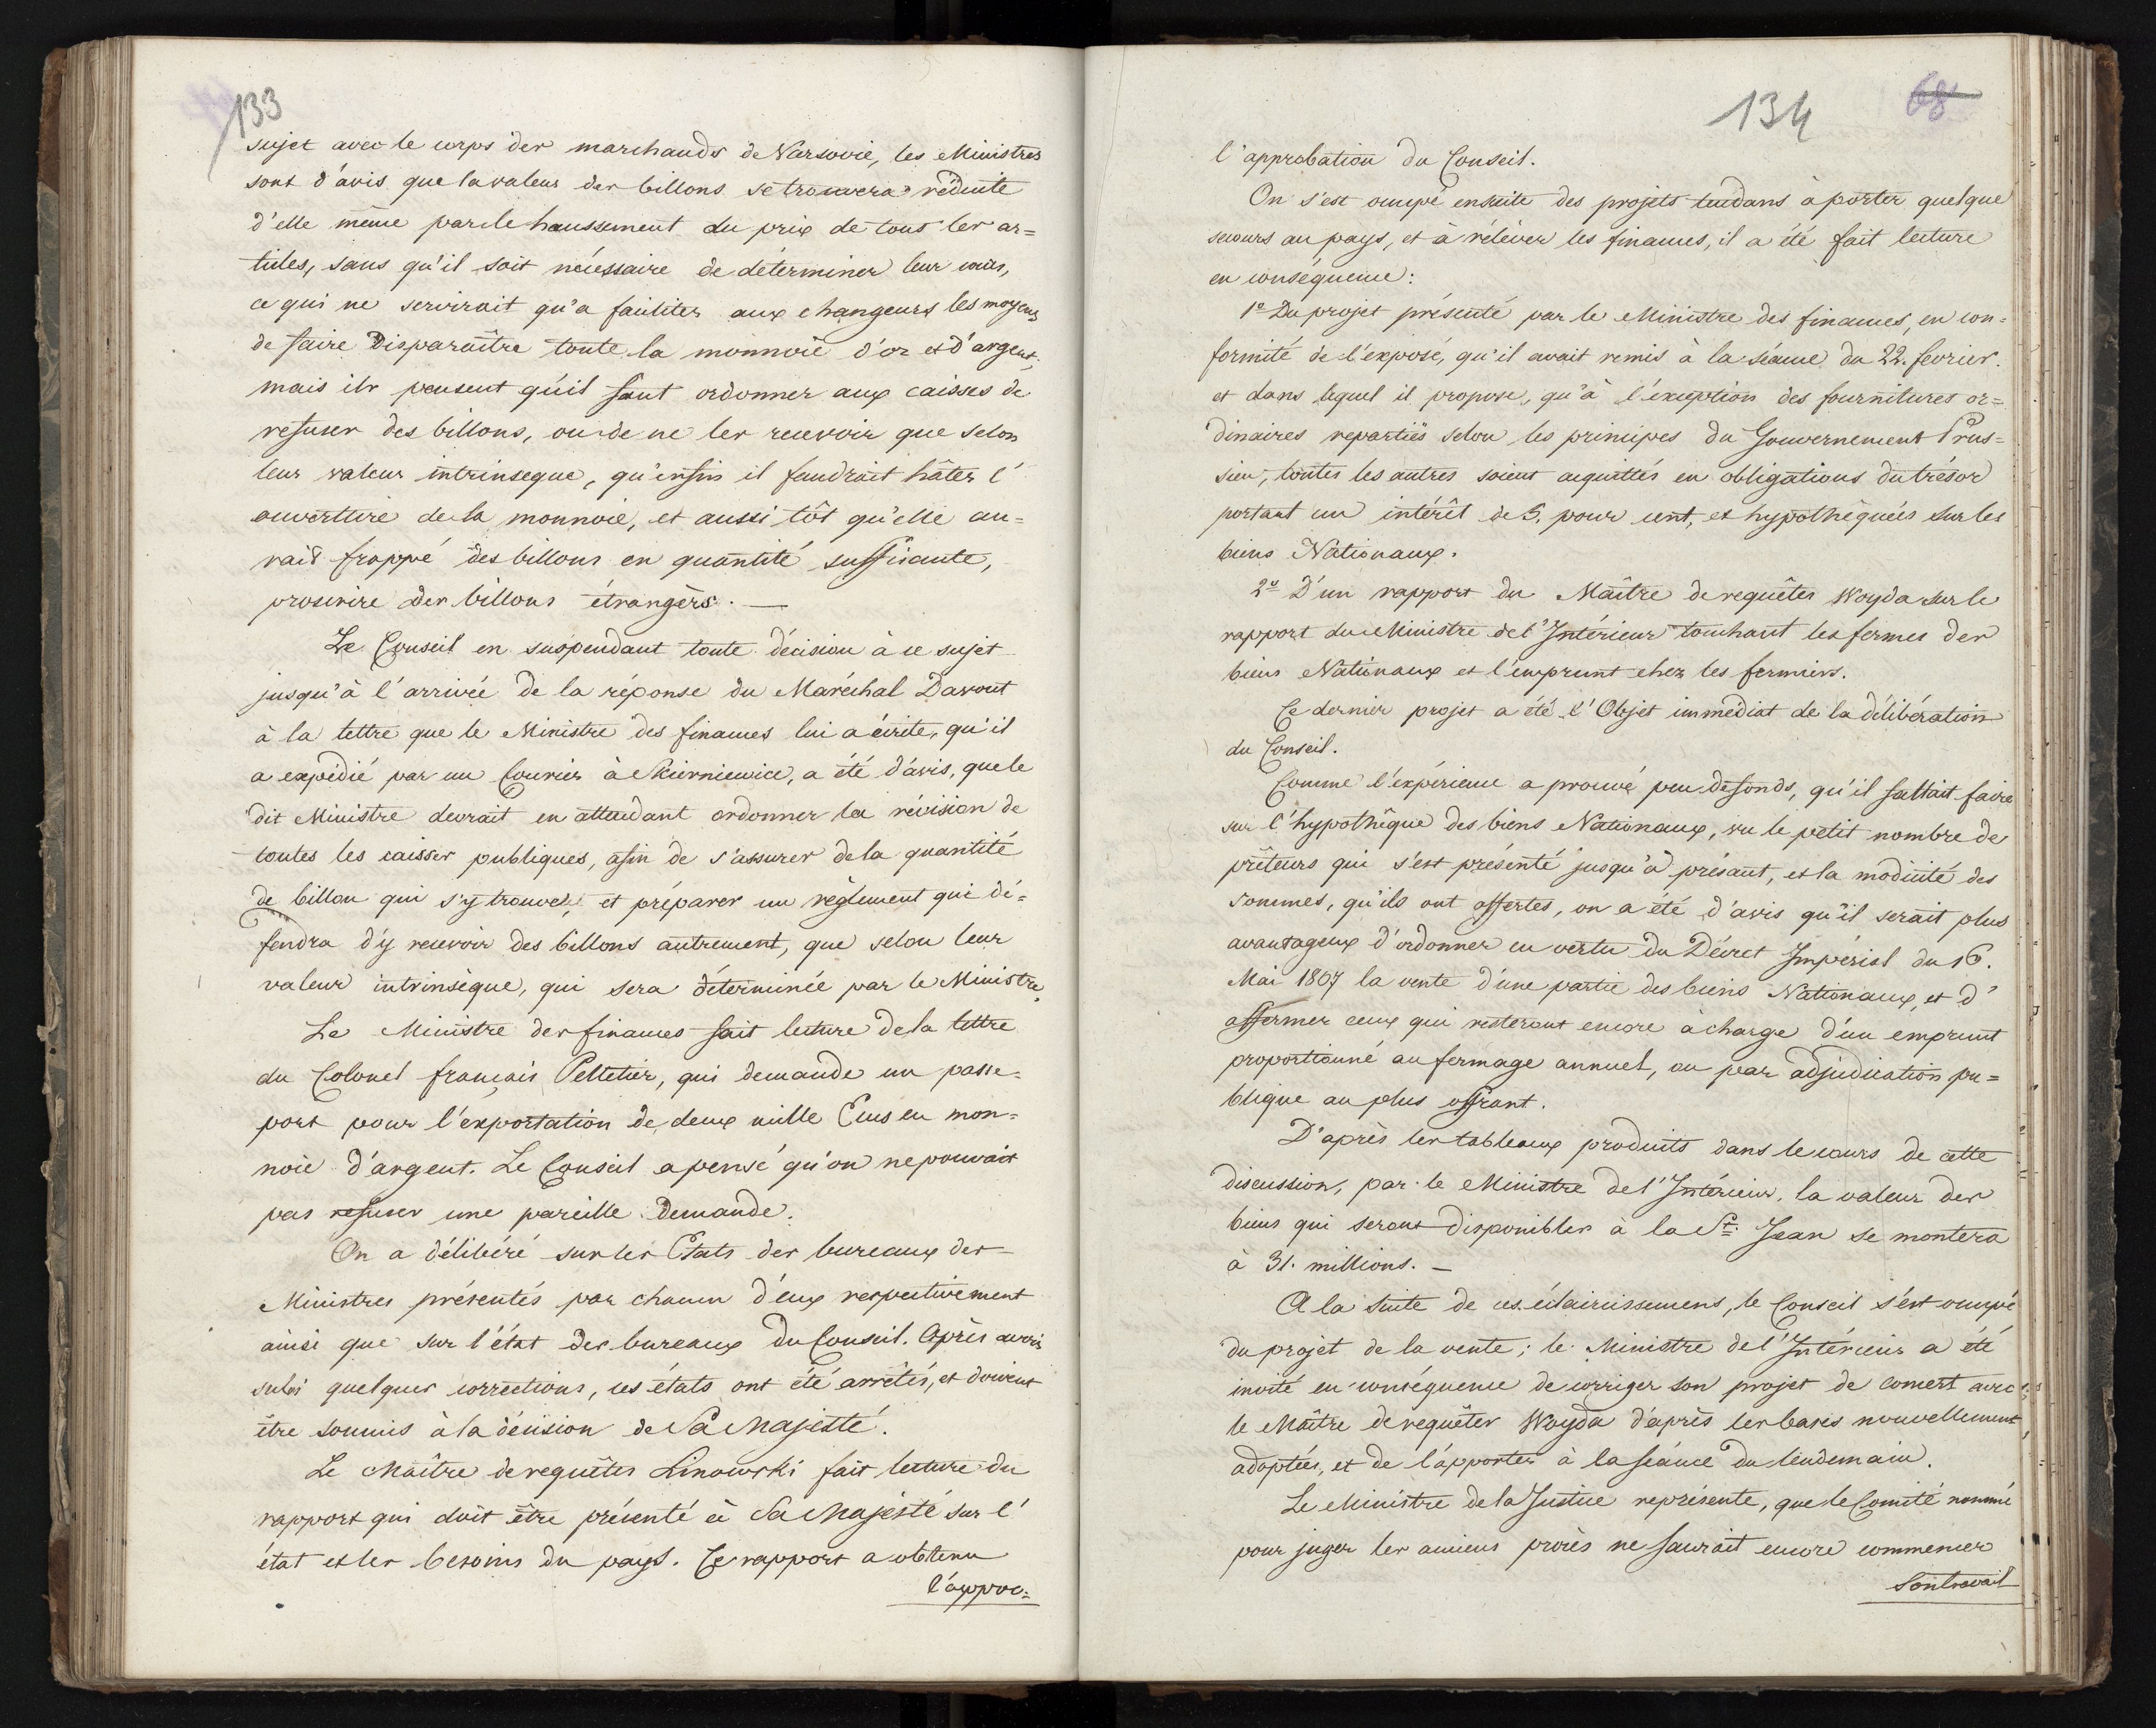 133
sujet avec le corps des marchands de Varsovie, les Ministres
sont d'avis que la valeur des billons se trouvera réduite
d'elle même par le haussement du prix de tous les ar=
ticles, sans qu'il soit nécessaire de déterminer leur cours,
ce qui ne servirait qu'a faciliter aux changeurs les moyens
de faire disparaître toute la monnoie d'or et d'argent;
mais ils pensent qu'il faut ordonner aux caisses de
refuser des billons, ou de ne les recevoir que selon
leur valeur intrinseque, qu'enfin il faudrait hâter l'
ouverture de la monnoie, et aussi tôt qu'elle au=
rait frappé des billons en quantité suffisante,
proscrire des billons étrangèrs. —
Le Conseil en suspendant toute décision à ce sujet
jusqu'à l'arrivée de la réponse du Maréchal Davout
à la lettre que le Ministre des finances lui a écrite, qu'il
a expédié par un Courier à Skierniewice, a été d'avis, que le
dit Ministre devrait en attendant ordonner la révision de
toutes les caisses publiques, afin de s'assurer de la quantité
de billon qui s'y trouve, et préparer un règlement qui dé=
fendra d'y recevoir des billons autrement, que selon leur
valeur intrinsèque, qui sera déterminée par le Ministre.
Le Ministre des finances fait lecture de la lettre
du Colonel français Pelletier, qui demande un passe=
port pour l'exportation de deux mille Ecus en mon=
noie d'argent. Le Conseil a pensé qu'on ne pouvait
pas refuser une pareille demande.
On a délibéré sur les Etats des bureaux des
Ministres présentés par chacun d'eux respectivement
ainsi que sur l'état des bureaux du Conseil. Après avoir
subi quelques corrections, ces états ont été arrêtés, et doivent
être soumis à la décision de Sa Majesté.
Le Maître de requêtes Linowski fait lecture du
rapport qui doit être présenté à Sa Majesté sur l'
état et les besoins du pays. Ce rapport a obtenu
l'appro=
134
68
l'approbation du Conseil.
On s'est occupé ensuite des projets tendans à porter quelque
secours au pays, et à rélèver les finances, il a été fait lecture
en conséquence:
1º Du projet présenté par le Ministre des finances, en con=
formité de l'exposé, qu'il avait remis à la séance du 22. fevrier.
et dans lequel il propose, qu'à l'exception des fournitures or=
dinaires reparties selon les principes du Gouvernement Prus=
sien, toutes les autres soient acquittés en obligations du trésor
portant un intérêt de 5. pour cent, et hypothêquées sur les
biens Nationaux.
2º D'un rapport du Maître de requêtes Woyda sur le
rapport du Ministre de l'Intérieur touchant les fermes des
biens Nationaux et l'emprunt chez les fermiers.
Ce dernier projet a été l'Objet immédiat de la délibération
du Conseil.
Comme l'expérience a prouvé peu de fonds, qu'il fallait faire
sur l'hypothêque des biens Nationaux, vu le petit nombre de
prêteurs qui s'est présenté jusqu'à présant, et la modicité des
sommes, qu'ils ont offertes, on a été d'avis qu'il serait plus
avantageux d'ordonner en vertu du Décret Impérial du 16.
Mai 1807 la vente d'une partie des biens Nationaux, et d'
affermer ceux qui resteront encore à charge d'un emprunt
proportionné au fermage annuel, ou par adjudication pu=
blique au plus offrant.
D'après les tableaux produits dans le cours de cette
discussion, par le Ministre de l'Intérieur, la valeur des
biens qui seront disponibles à la St. Jean se montera
à 31. millions. —
A la suite de ces éclaircissemens, le Conseil s'est occupé
du projet de la vente; le Ministre de l'Intérieur a été
invité en conséquence de corriger son projet de concert avec
le Maître de requêtes Woyda d'après les bases nouvellement
adoptées, et de l'apporter à la séance du lendemain.
Le Ministre de la Justice représente, que le Comité nommé
pour juger les anciens procès ne saurait encore commencer
son travail